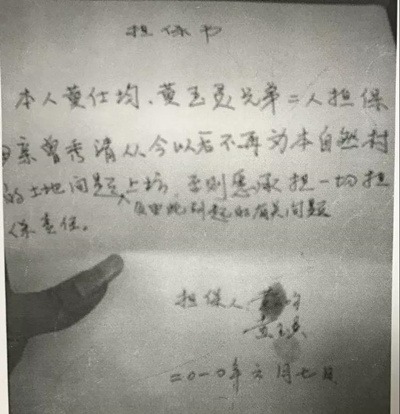 担保书
本人黄仕均、黄玉兄弟二人担保
母亲曾秀清从今以后不再为本自然村
的土地问题上访,否则愿承担一切担
及由此引起的有关问题
保责任。
担保人 黄
黄玉
二〇一〇年 月七日